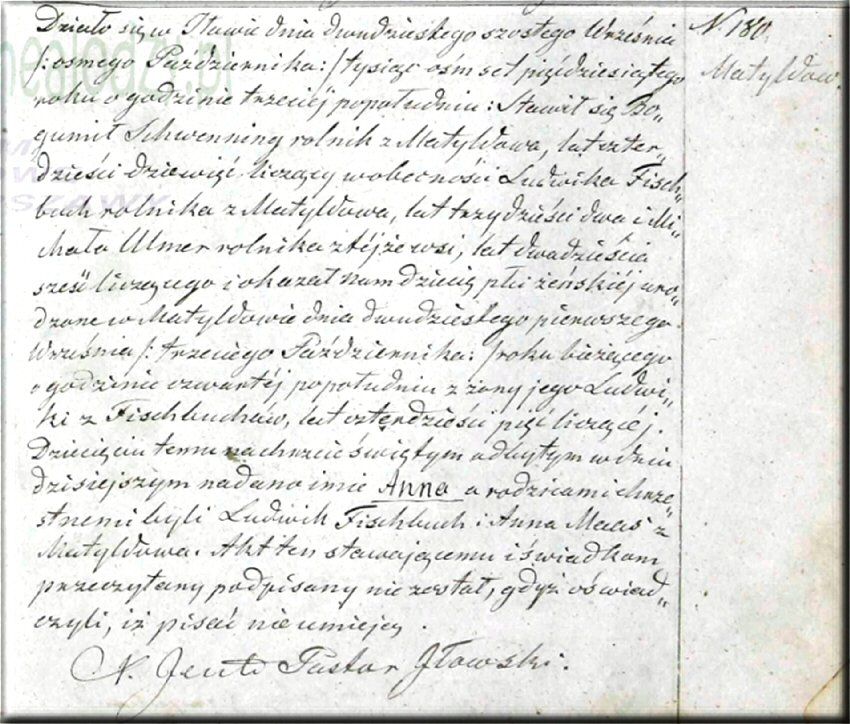 Działo się w Iławie dnia dwudziestego szóstego Września
N. 180.
/: ósmego Października: / tysiąc ośmset pięćdziesiątego
Matyldów.
roku o godzinie trzeciéj popołudniu: Stawił się Bo„
gumił Schwenning rolnik z Matyldowa, lat czter„
dzieści dziewięć liczący w obecności Ludwika Fisch„
buch rolnika z Matyldowa, lat trzydzieści dwa i Mi„
chała Ulmer rolnika z téjże wsi, lat dwadzieścia
sześć liczącego i okazał nam dziecię płci żeńskiéj uro„
dzone w Matyldowie dnia dwudziestego pierwszego
Września /: trzeciego Października: / roku bieżącego
o godzinie czwartéj popołudniu z żony jego Ludwi„
ki z Fischbuchów, lat czterdzieści pięć liczącéj.
Dziecięciu temu na chrzcie świętym odbytym w dniu
dzisiejszym nadano imie Anna a rodzicami chrze„
stnemi byli Ludwik Fischbuch i Anna Maas z
Matyldowa. Akt ten stawającemu i świadkom
przeczytany podpisany nie został, gdyż oświad„
czyli, iż pisać nie umieją.
N. Pastor Iłowski.